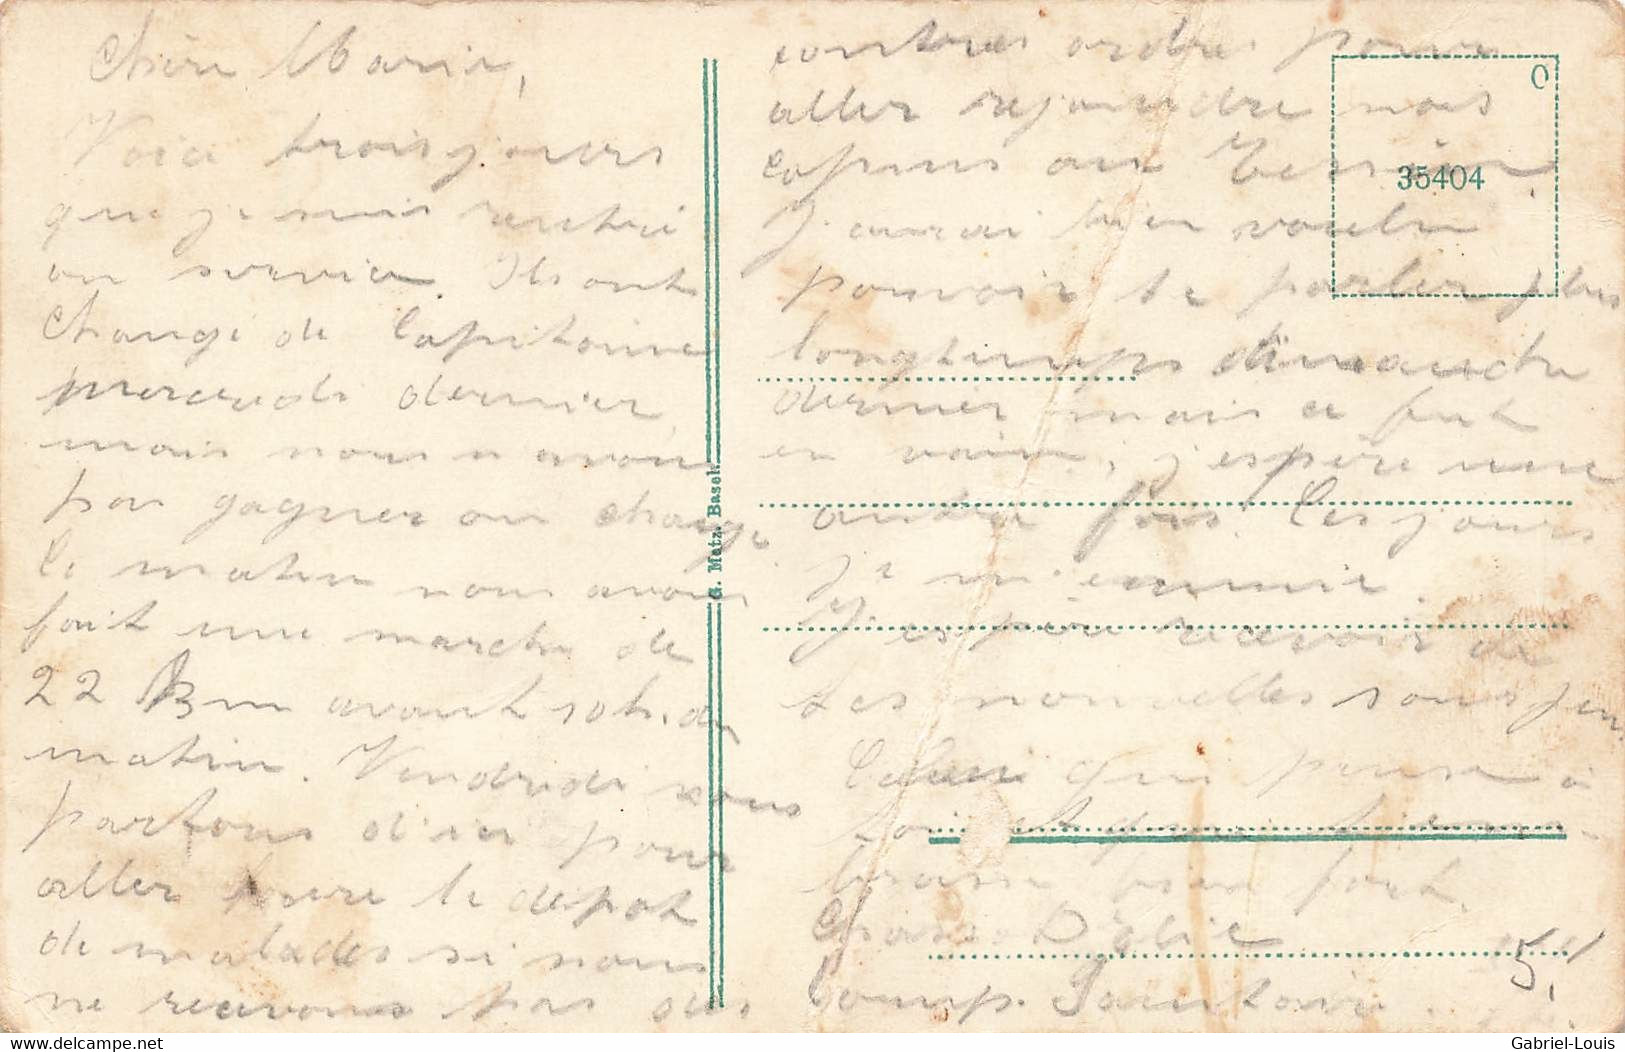 Chère Maria,
Voici trois jours
que je suis rentré
au service. Ils ont
changé de Capitaine
mercredi dernier,
mais nous n avons
pas gagner au change
le matin nous avons
fait une marche de
22 Km avant 10 h. du
matin. Vendredi nous
partons d'ici pour
aller faire le dépot
de malades si nous
ne recevons pas des
contres ordres pour
aller rejoindre nos
copins au Tessin.
J. aurai bien voulu
pouvoir te parler plus
longtemps dimanche
dernier mais ce fut
en vain, j'espère une
autre fois. Ces jours
je m'ennuie.
J. espère recevoir de
tes nouvelles sous peu.
Celui qui pense à
toi et qui t'em-
brasse bien fort.
D'Elie
Comp. Sanitaire.
O
35404
G. Metz, Basel
Gabriel-Louis